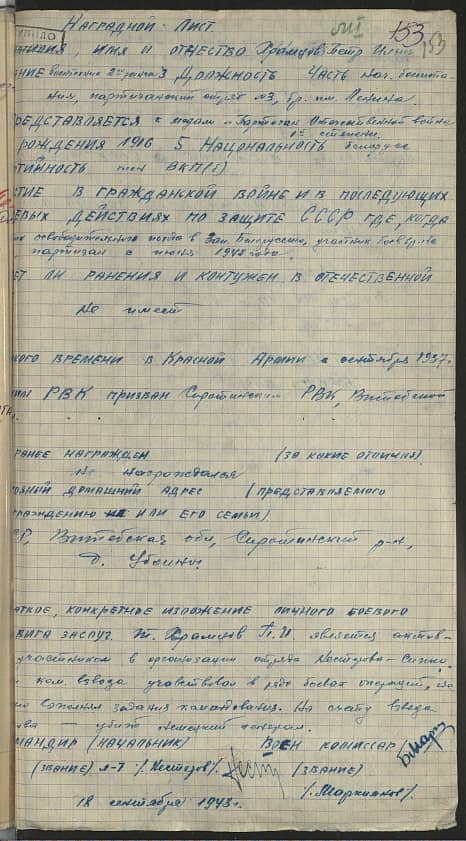 Наградной Лист.
153
153
, имя и отчество Храмцов Петр
Должность Часть нач.
ния, партизанский отряд №3, бр. им. Ленина.
редставляется к медали "Партизан Отечественной войне
1ой степени.
рождения 1916 5 Национальность белорус
тийность член ВКП(б)
тие в гражданской войне и в последующих
евых действиях по защите СССР где, когда
освободительного похода в Зап. Белоруссию, участник
партизан с июня 1942 года.
ет ли ранения и контужен в отечественной
Не имеет
кого времени в Красной Армии с сентября 1937г.
РВК призван Сиротинским РВК, Витебской
ранее награжден (за какие отличия)
Не награждался
оянный домашний адрес (представляемого
граждению или его семьи)
Р, Витебская обл, Сиротинский р-н,
д. Убоино.
аткое, конкретное изложение личного боевого
вига заслуг. т. Храмцов П.И. является актив-
участником в организации отряда
ком. взвода участвовал в ряде боевых операций,
выполнял задания командования. На счету взвода
убит немецкий генерал.
мандир (начальник) Воен комиссар
(звание) л-т /. Нестеров/. (звание)
/. Маркианов/.
18 сентября 1943г.